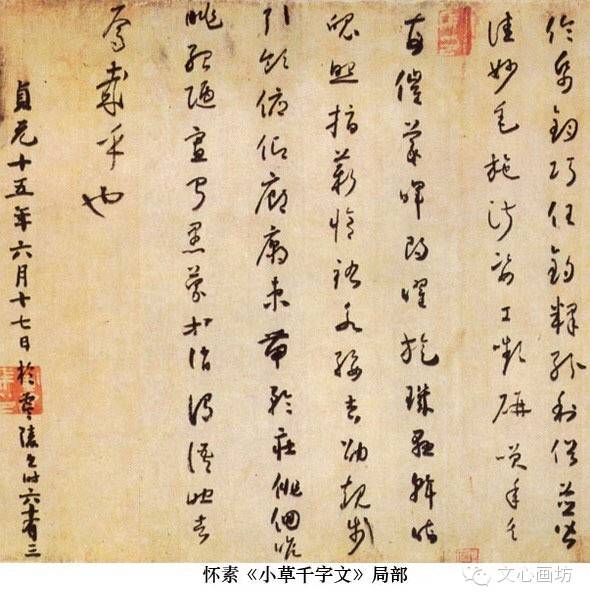 倫紙鈞巧任釣釋紛利俗並皆
佳妙毛施淑姿工顰妍笑年矢
每催羲暉朗曜旋璣懸斡晦
魄照指薪脩祜永綏吉劭矩步
引領俯仰廊廟束帶矜莊徘徊瞻
眺孤陋寡聞愚蒙等誚謂語助者
焉哉乎也
貞元十五年六月十七日於零陵書時六十有三
怀素《小草千字文》局部
文心画坊